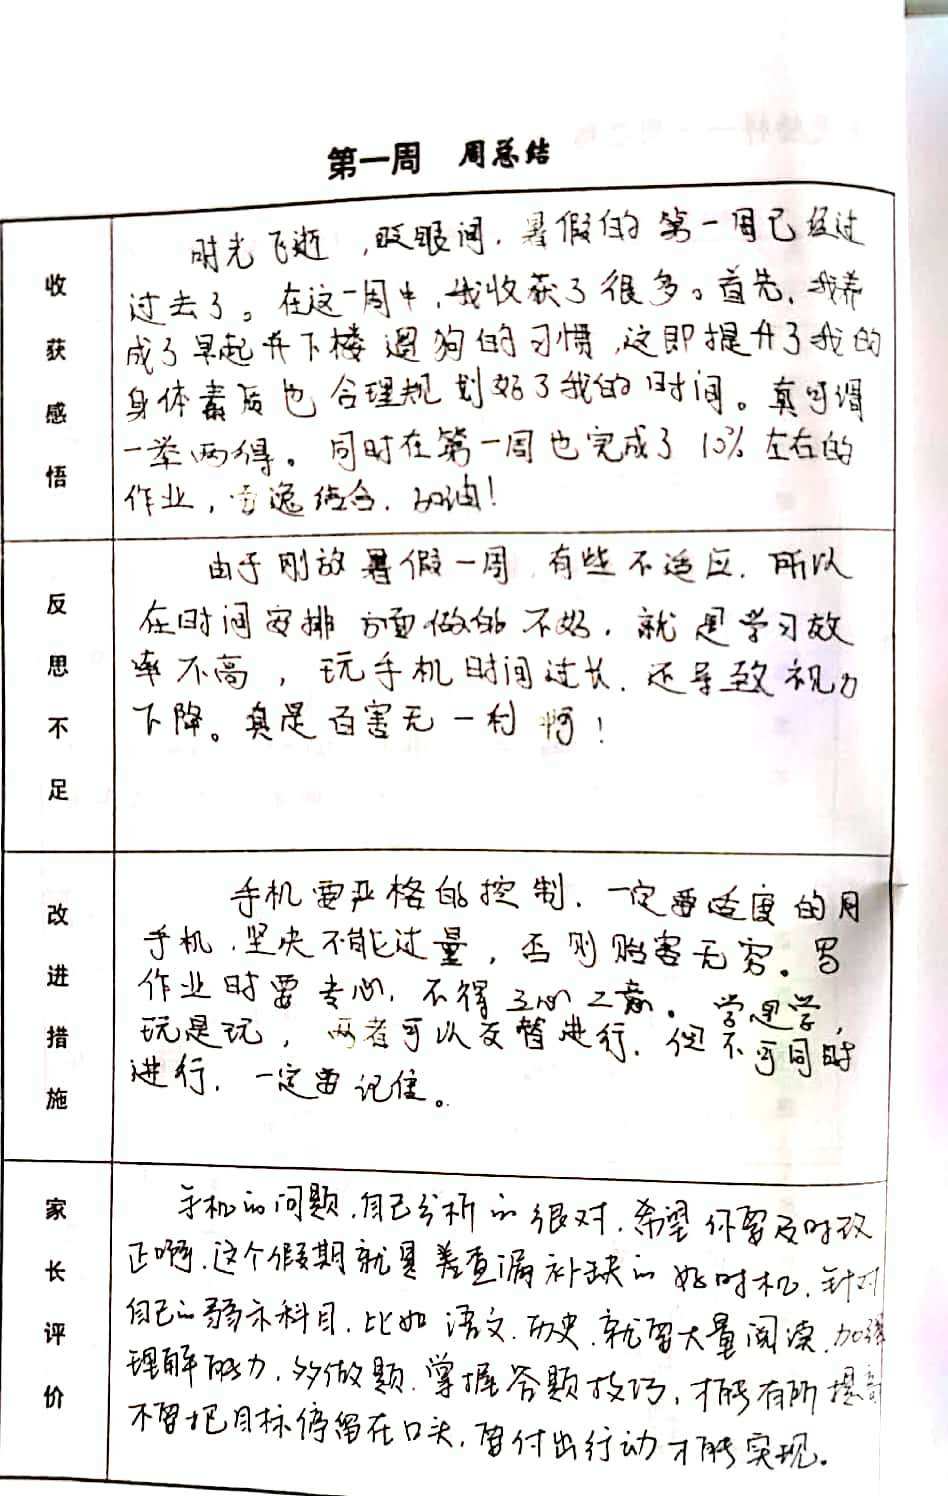 第一周 周总结
收获感悟
时光飞逝,眨眼间,暑假的第一周已经过
过去了。在这一周中,我收获了很多。首先,我养
成了早起并下楼遛狗的习惯,这即提升了我的
身体素质也合理规划好了我的时间。真可谓
一举两得。同时在第一周也完成了10%左右的
作业,劳逸结合,加油!
反思不足
由于刚放暑假一周,有些不适应,所以
在时间安排方面做的不好,就是学习效
率不高,玩手机时间过长,还导致视力
下降。真是百害无一利啊!
改进措施
手机要严格的控制,一定要适度的用
手机,坚决不能过量,否则贻害无穷。写
作业时要专心,不得三心二意。学是学,
玩是玩,两者可以交替进行,但不可同时
进行,一定要记住。
家长评价
手机的问题,自己分析的很对,希望你要及时改
正啊,这个假期就是查漏补缺的好时机,针对
自己的弱示科目,比如语文、历史,就要大量阅读,加强
理解能力,多做题,掌握答题技巧,才能有所提高
不要把目标停留在口头,要付出行动才能实现。